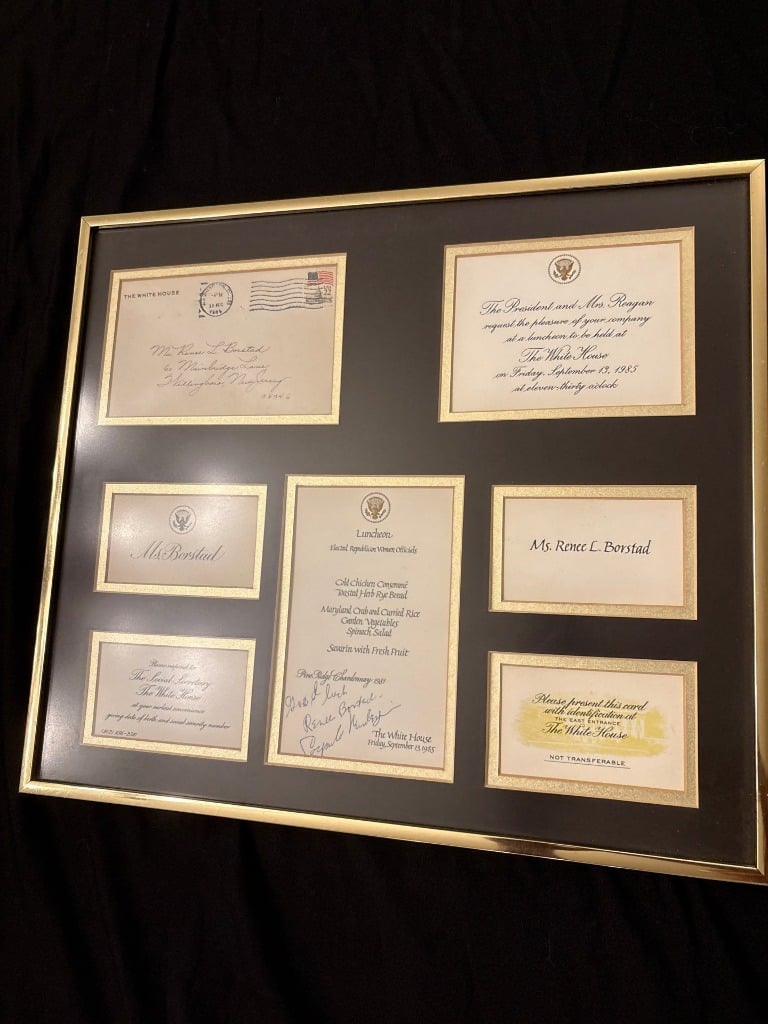 THE WHITE HOUSE
22
1985
Ms. Renee L. Borstad
Lane
Willingboro, New Jersey
08046
The President and Mrs. Reagan
request the pleasure of your company
at a luncheon to be held at
The White House
on Friday, September 13, 1985
at eleven-thirty o'clock
Ms. Borstad
Luncheon
Elected Republican Women Officials
Cold Chicken Consommé
Toasted Herb Rye Bread
Maryland Crab and Curried Rice
Garden Vegetables
Spinach Salad
Savarin with Fresh Fruit
Pine Ridge Chardonnay 1983
Good luck
Renee Borstad
The White House
Friday, September 13, 1985
Ms. Renee L. Borstad
Please respond to
The Social Secretary
The White House
at your earliest convenience
giving date of birth and social security number
Please present this card
with identification at
THE EAST ENTRANCE
The White House
NOT TRANSFERABLE